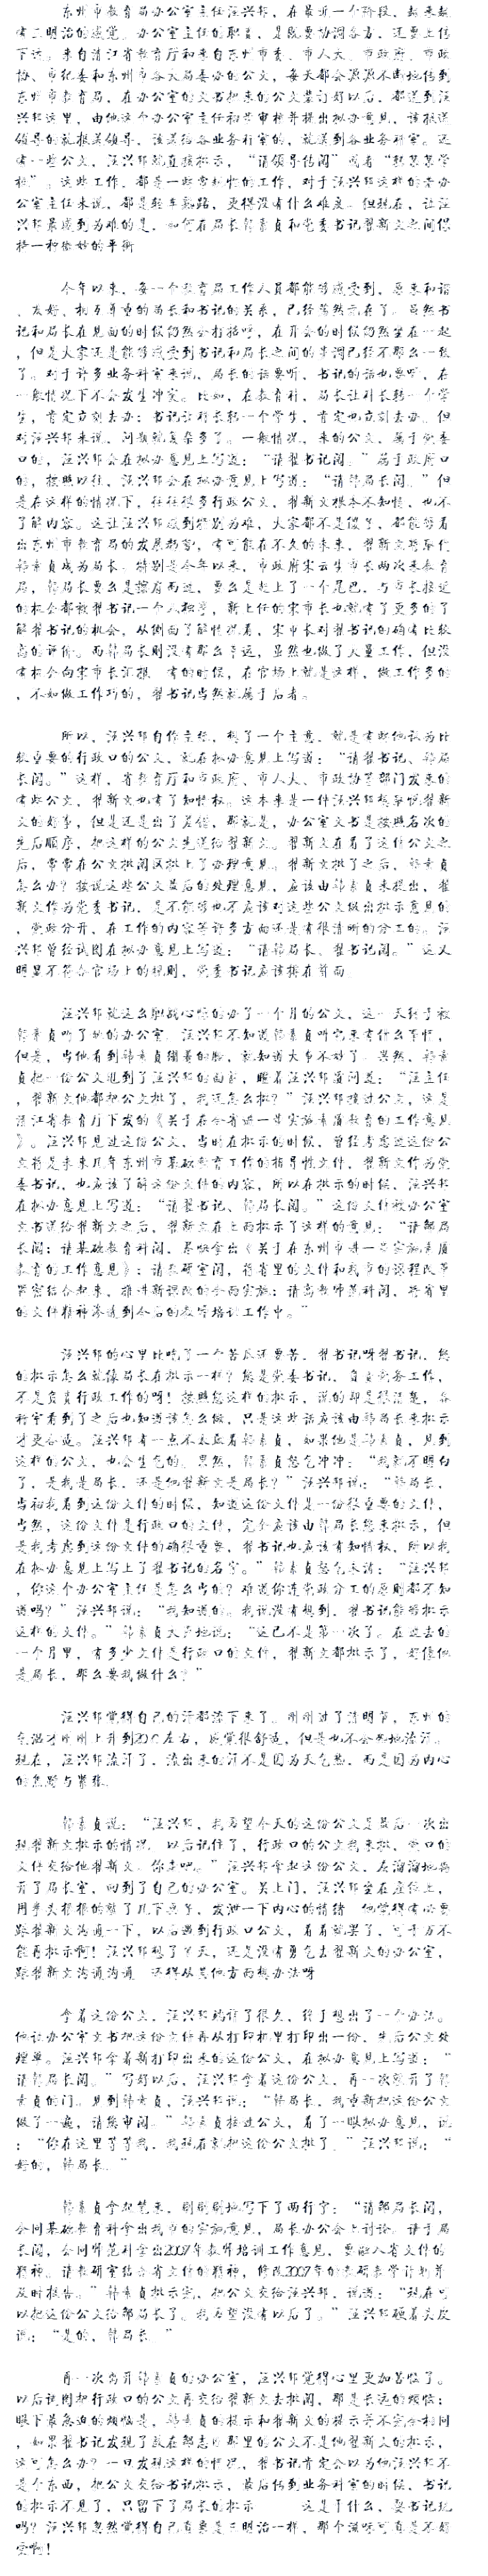 东州市教育局办公室主任汪兴邦，在最近一个阶段，越来越
有三明治的感觉。办公室主任的职责，是既要协调各方，还要上传
下达。来自清江省教育厅和来自东州市委、市人大、市政府、市政
协、市纪委和东州市各大局委办的公文，每天都会源源不断地传到
东州市教育局，在办公室的文书把来的公文装订好以后，都送到汪
兴邦这里，由他这个办公室主任初步审核并提出拟办意见，该报送
领导的就报送领导，该送给各业务科室的，就送到各业务科室。还
有一些公文，汪兴邦就直接批示，“请领导传阅”或者“转某某学
校”。这些工作，都是一些常规性的工作，对于汪兴邦这样的老办
公室主任来说，都是轻车熟路，更得没有什么难度。但现在，让汪
兴邦最感到为难的是，如何在局长韩素贞和党委书记翟新文之间保
持一种微妙的平衡
今年以来，每一个教育局工作人员都能够感受到，原来和谐
、友好、相互尊重的局长和书记的关系，已经荡然无存了。虽然书
记和局长在见面的时候仍然会打招呼，在开会的时候仍然坐在一起
，但是大家还是能够感受到书记和局长之间的步调已经不那么一致
了。对于许多业务科室来说，局长的话要听，书记的话也要听，在
一般情况下不会发生冲突。比如，在教育科，局长让科长转一个学
生，肯定立刻去办；书记让科长转一个学生，肯定也立刻去办。但
对汪兴邦来说，问题就复杂多了。一般情况，来的公文，属于党委
口的，汪兴邦会在拟办意见上写道：“请翟书记阅。”属于政府口
的，按照以往，汪兴邦会在拟办意见上写道：“请韩局长阅。”但
是在这样的情况下，往往很多行政公文，翟新文根本不知情，也不
了解内容。这让汪兴邦感到特别为难，大家都不是傻子，都能够看
出东州市教育局的发展趋势，有可能在不久的未来，翟新文将取代
韩素贞成为局长。特别是今年以来，市政府宋云生市长两次来教育
局，韩局长要么是擦肩而过，要么是赶上了一个尾巴，与市长接近
的机会都被翟书记一个人独享，新上任的宋市长也就有了更多的了
解翟书记的机会，从侧面了解情况看，宋市长对翟书记的确有比较
高的评价。而韩局长则没有那么幸运，虽然也做了大量工作，但没
有机会向宋市长汇报 有的时候，在官场上就是这样，做工作多的
，不如做工作巧的，翟书记当然就属于后者。
所以，汪兴邦自作主张，想了一个主意，就是有些他认为比
较重要的行政口的公文，就在拟办意见上写道：“请翟书记、韩局
长阅。”这样，省教育厅和市政府、市人大、市政协等部门发来的
有些公文，翟新文也有了知情权。这本来是一件汪兴邦想争悦翟新
文的好事，但是还是出了差错，那就是，办公室文书是按照名次的
先后顺序，把这样的公文先送给翟新文。翟新文在看了这份公文之
后，常常在公文批阅区批上了办理意见。翟新文批了之后，韩素贞
怎么办？按说这些公文最后的处理意见，应该由韩素贞来提出，翟
新文作为党委书记，是不能够也不应该对这些公文做出批示意见的
，党政分开，在工作的内容等许多方面还是有很清晰的分工的。汪
兴邦曾经试图在拟办意见上写道：“请韩局长、翟书记阅。”这又
明显不符合官场上的规则，党委书记应该排在前面
汪兴邦就这么胆战心惊的办了一个月的公文，这一天终于被
韩素贞叫了她的办公室。汪兴邦不知道韩素贞叫它来有什么事情，
但是，当他看到韩素贞绷着的脸，就知道大事不妙了。果然，韩素
贞把一份公文递到了汪兴邦的面前，瞪着汪兴邦质问道：“汪主任
，翟新文他都把公文批了，我还怎么批？”汪兴邦接过公文，这是
清江省教育厅下发的《关于在全省进一步实施素质教育的工作意见
》。汪兴邦见过这份公文，当时在批示的时候，曾经考虑过这份公
文将是未来几年东州市基础教育工作的指导性文件，翟新文作为党
委书记，也应该了解这份文件的内容，所以在批示的时候，汪兴邦
在拟办意见上写道：“请翟书记、韩局长阅。”这份文件被办公室
文书送给翟新文之后，翟新文在上面批示了这样的意见：“请郝局
长阅；请基础教育科阅，尽快拿出《关于在东州市进一步实施素质
教育的工作意见》；请教研室阅，将省里的文件和我市的课程改革
紧密结合起来，推进新课改的全面实施；请高教师范科阅，将省里
的文件精神渗透到今后的教师培训工作中。”
汪兴邦的心里比吃了一个苦瓜还要苦，翟书记呀翟书记，您
的批示怎么就像局长在批示一样？您是党委书记，负责党务工作，
不是负责行政工作的呀！按照您这样的批示，说的却是很清楚，各
科室看到了之后也知道该怎么做，只是这些话应该由韩局长来批示
才更合适。汪兴邦有一点不太敢看韩素贞，如果他是韩素贞，见到
这样的公文，也会生气的。果然，韩素贞怒气冲冲：“我就不明白
了，是我是局长，还是他翟新文是局长？”汪兴邦说：“韩局长，
当初我看到这份文件的时候，知道这份文件是一份很重要的文件，
当然，这份文件是行政口的文件，完全应该由韩局长您来批示，但
是我考虑到这份文件的确很重要，翟书记也应该有知情权，所以我
在拟办意见上写上了翟书记的名字。”韩素贞怒气未消：“汪兴邦
，你这个办公室主任是怎么当的？难道你连党政分工的原则都不知
道吗？”汪兴邦说：“我知道的。我说没有想到，翟书记能够批示
这样的文件。”韩素贞大声地说：“这已不是第一次了。在过去的
一个月里，有多少文件是行政口的文件，翟新文都批示了，好像他
是局长，那么要我做什么？”
汪兴邦觉得自己的汗都流下来了。刚刚过了清明节，东州的
气温才刚刚上升到20℃左右，感觉很舒适，但是也不会热地流汗。
现在，汪兴邦流汗了，流出来的汗不是因为天气热，而是因为内心
的焦躁与紧张。
韩素贞说：“汪兴邦，我希望今天的这份公文是最后一次出
现翟新文批示的情况，以后记住了，行政口的公文我来批，党口的
文件交给他翟新文。你去吧。”汪兴邦拿起这份公文，灰溜溜地离
开了局长室，回到了自己的办公室。关上门，汪兴邦坐在座位上，
用拳头狠狠的敲了几下桌子，发泄一下内心的情绪 他觉得有必要
跟翟新文沟通一下，以后遇到行政口公文，看看就罢了，可千万不
能再批示啊！汪兴邦想了半天，还是没有勇气去翟新文的办公室，
跟翟新文沟通沟通 还得从其他方面想办法呀
拿着这份公文，汪兴邦端详了很久，终于想出了一个办法。
他让办公室文书把这份文件再从打印机里打印出一份，先后公文处
理单。汪兴邦拿着新打印出来的这份公文，在拟办意见上写道：“
请韩局长阅。”写好以后，汪兴邦拿着这份公文，再一次敲开了韩
素贞的门。见到韩素贞，汪兴邦说：“韩局长，我重新把这份公文
做了一遍，请您审阅。”韩素贞接过公文，看了一眼拟办意见，说
：“你在这里等等我，我现在就把这份公文批了。”汪兴邦说：“
好的，韩局长。”
韩素贞拿起笔来，刷刷刷地写下了两行字：“请郝局长阅，
会同基础教育科拿出我市的实施意见，局长办公会上讨论。请于局
长阅，会同师范科拿出2007年教师培训工作意见，要融入省文件的
精神。请教研室结合省文件的精神，修改2007年的教研教学计划并
及时报告。”韩素贞批示完，把公文交给汪兴邦，说道：“现在可
以把这份公文给郝局长了。我希望没有以后了。”汪兴邦硬着头皮
说：“是的，韩局长。”
再一次离开韩素贞的办公室，汪兴邦觉得心里更加苦恼了。
以后试图把行政口的公文再交给翟新文去批阅，那是长远的烦恼；
眼下最急迫的烦恼是，韩素贞的批示和翟新文的批示并不完全相同
，如果翟书记发现了放在郝志明那里的公文不是他翟新文的批示，
这可怎么办？一旦发现这样的情况，翟书记肯定会以为他汪兴邦不
是个东西，把公文交给书记批示，最后传到业务科室的时候，书记
的批示不见了，只留下了局长的批示 这是干什么，耍书记玩
吗？汪兴邦忽然觉得自己真要是三明治一样，那个滋味可真是不好
受啊！